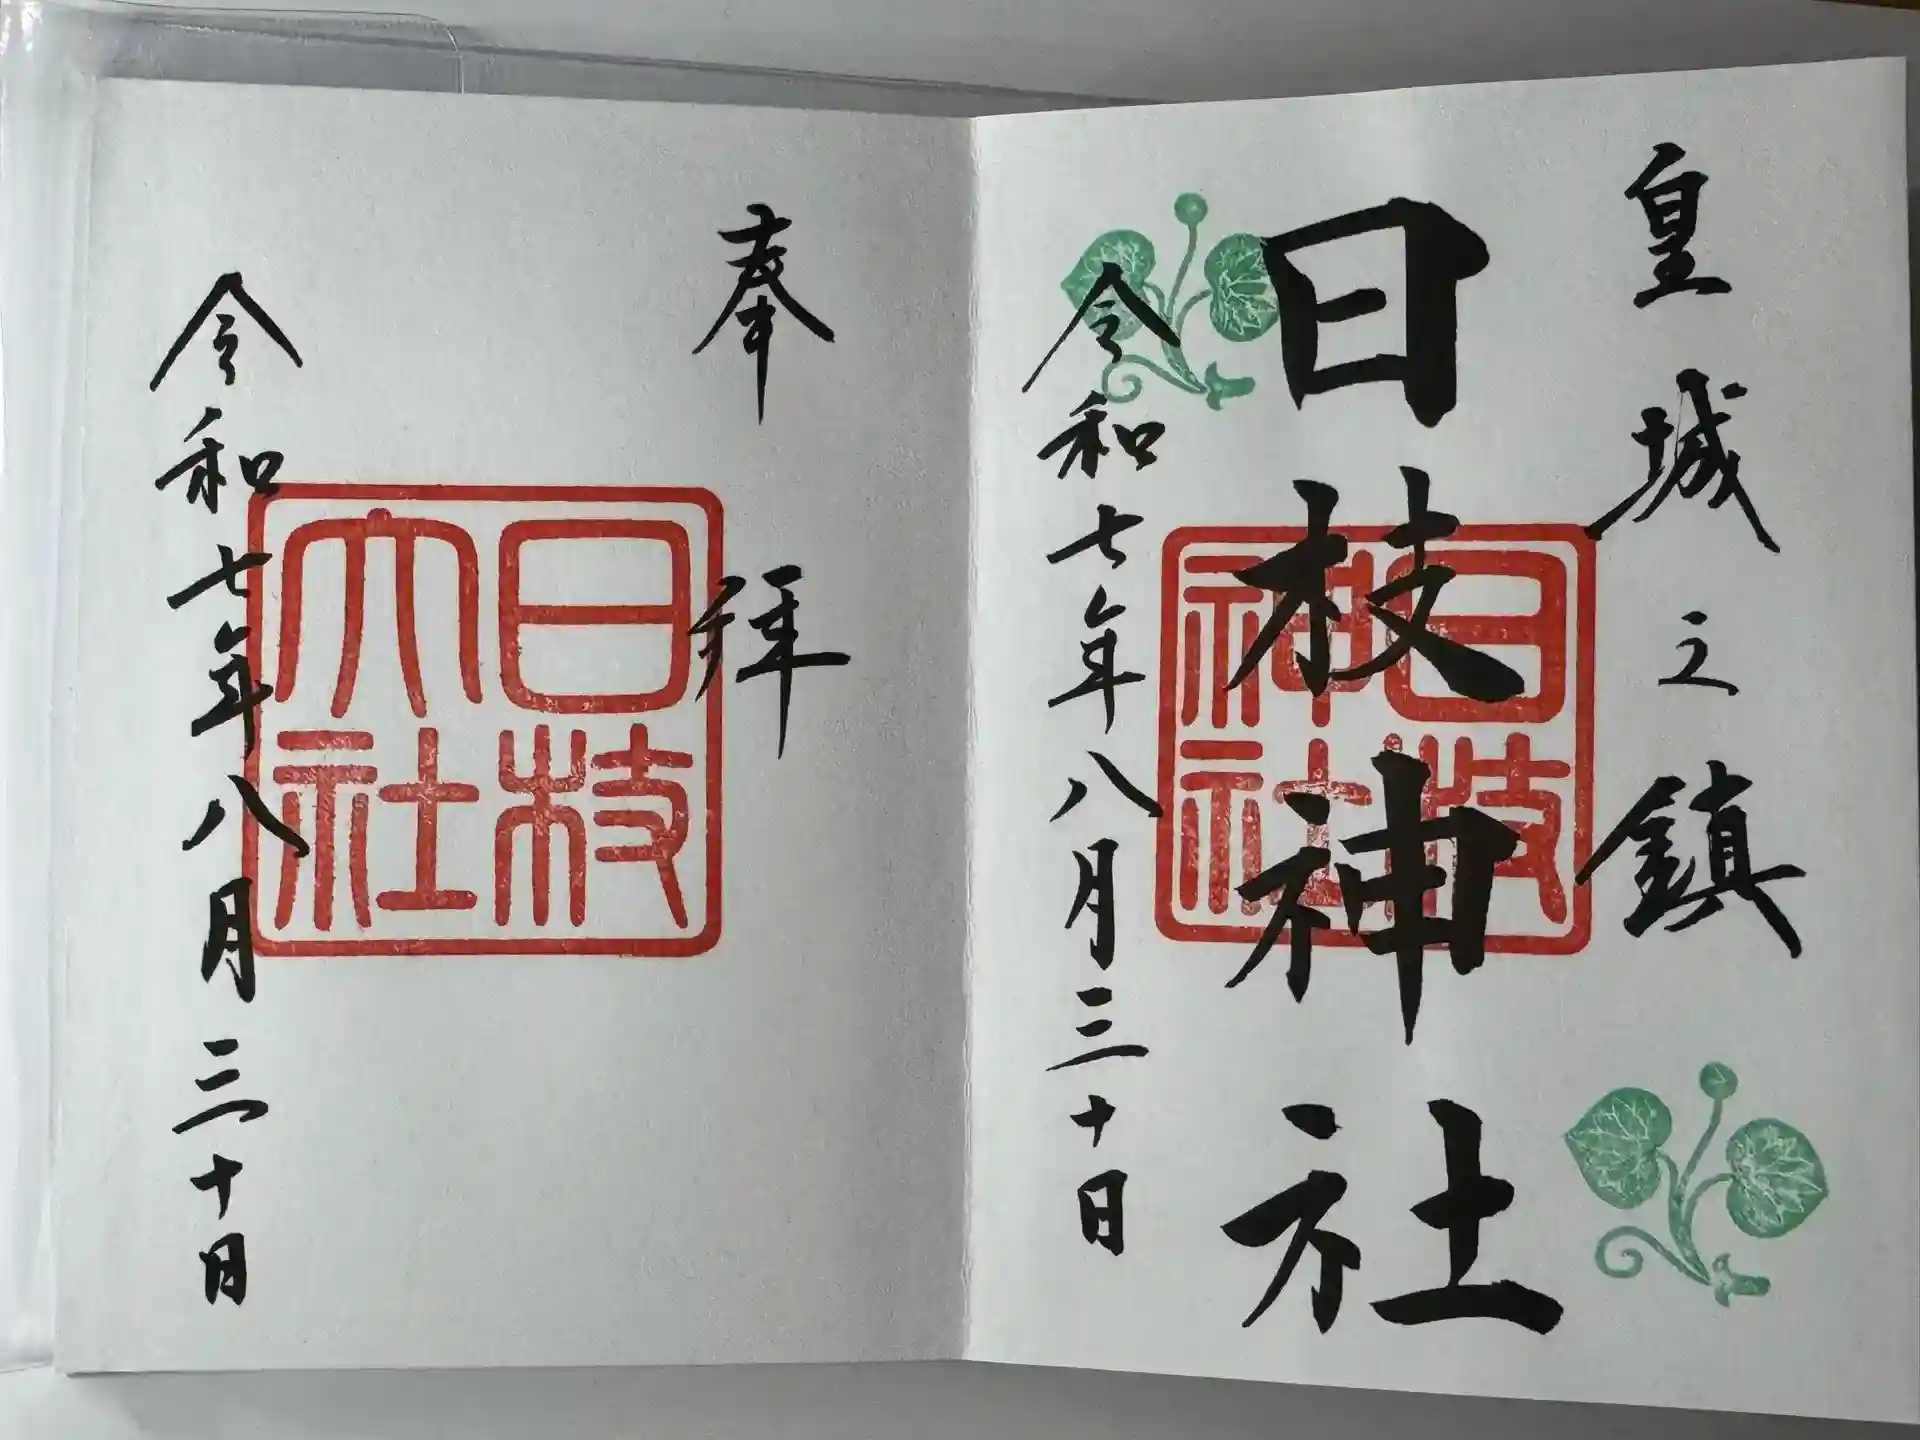 皇城之鎮
日枝神社
日枝神社
令和七年八月三十日
奉拝
日枝大社
令和七年八月三十日